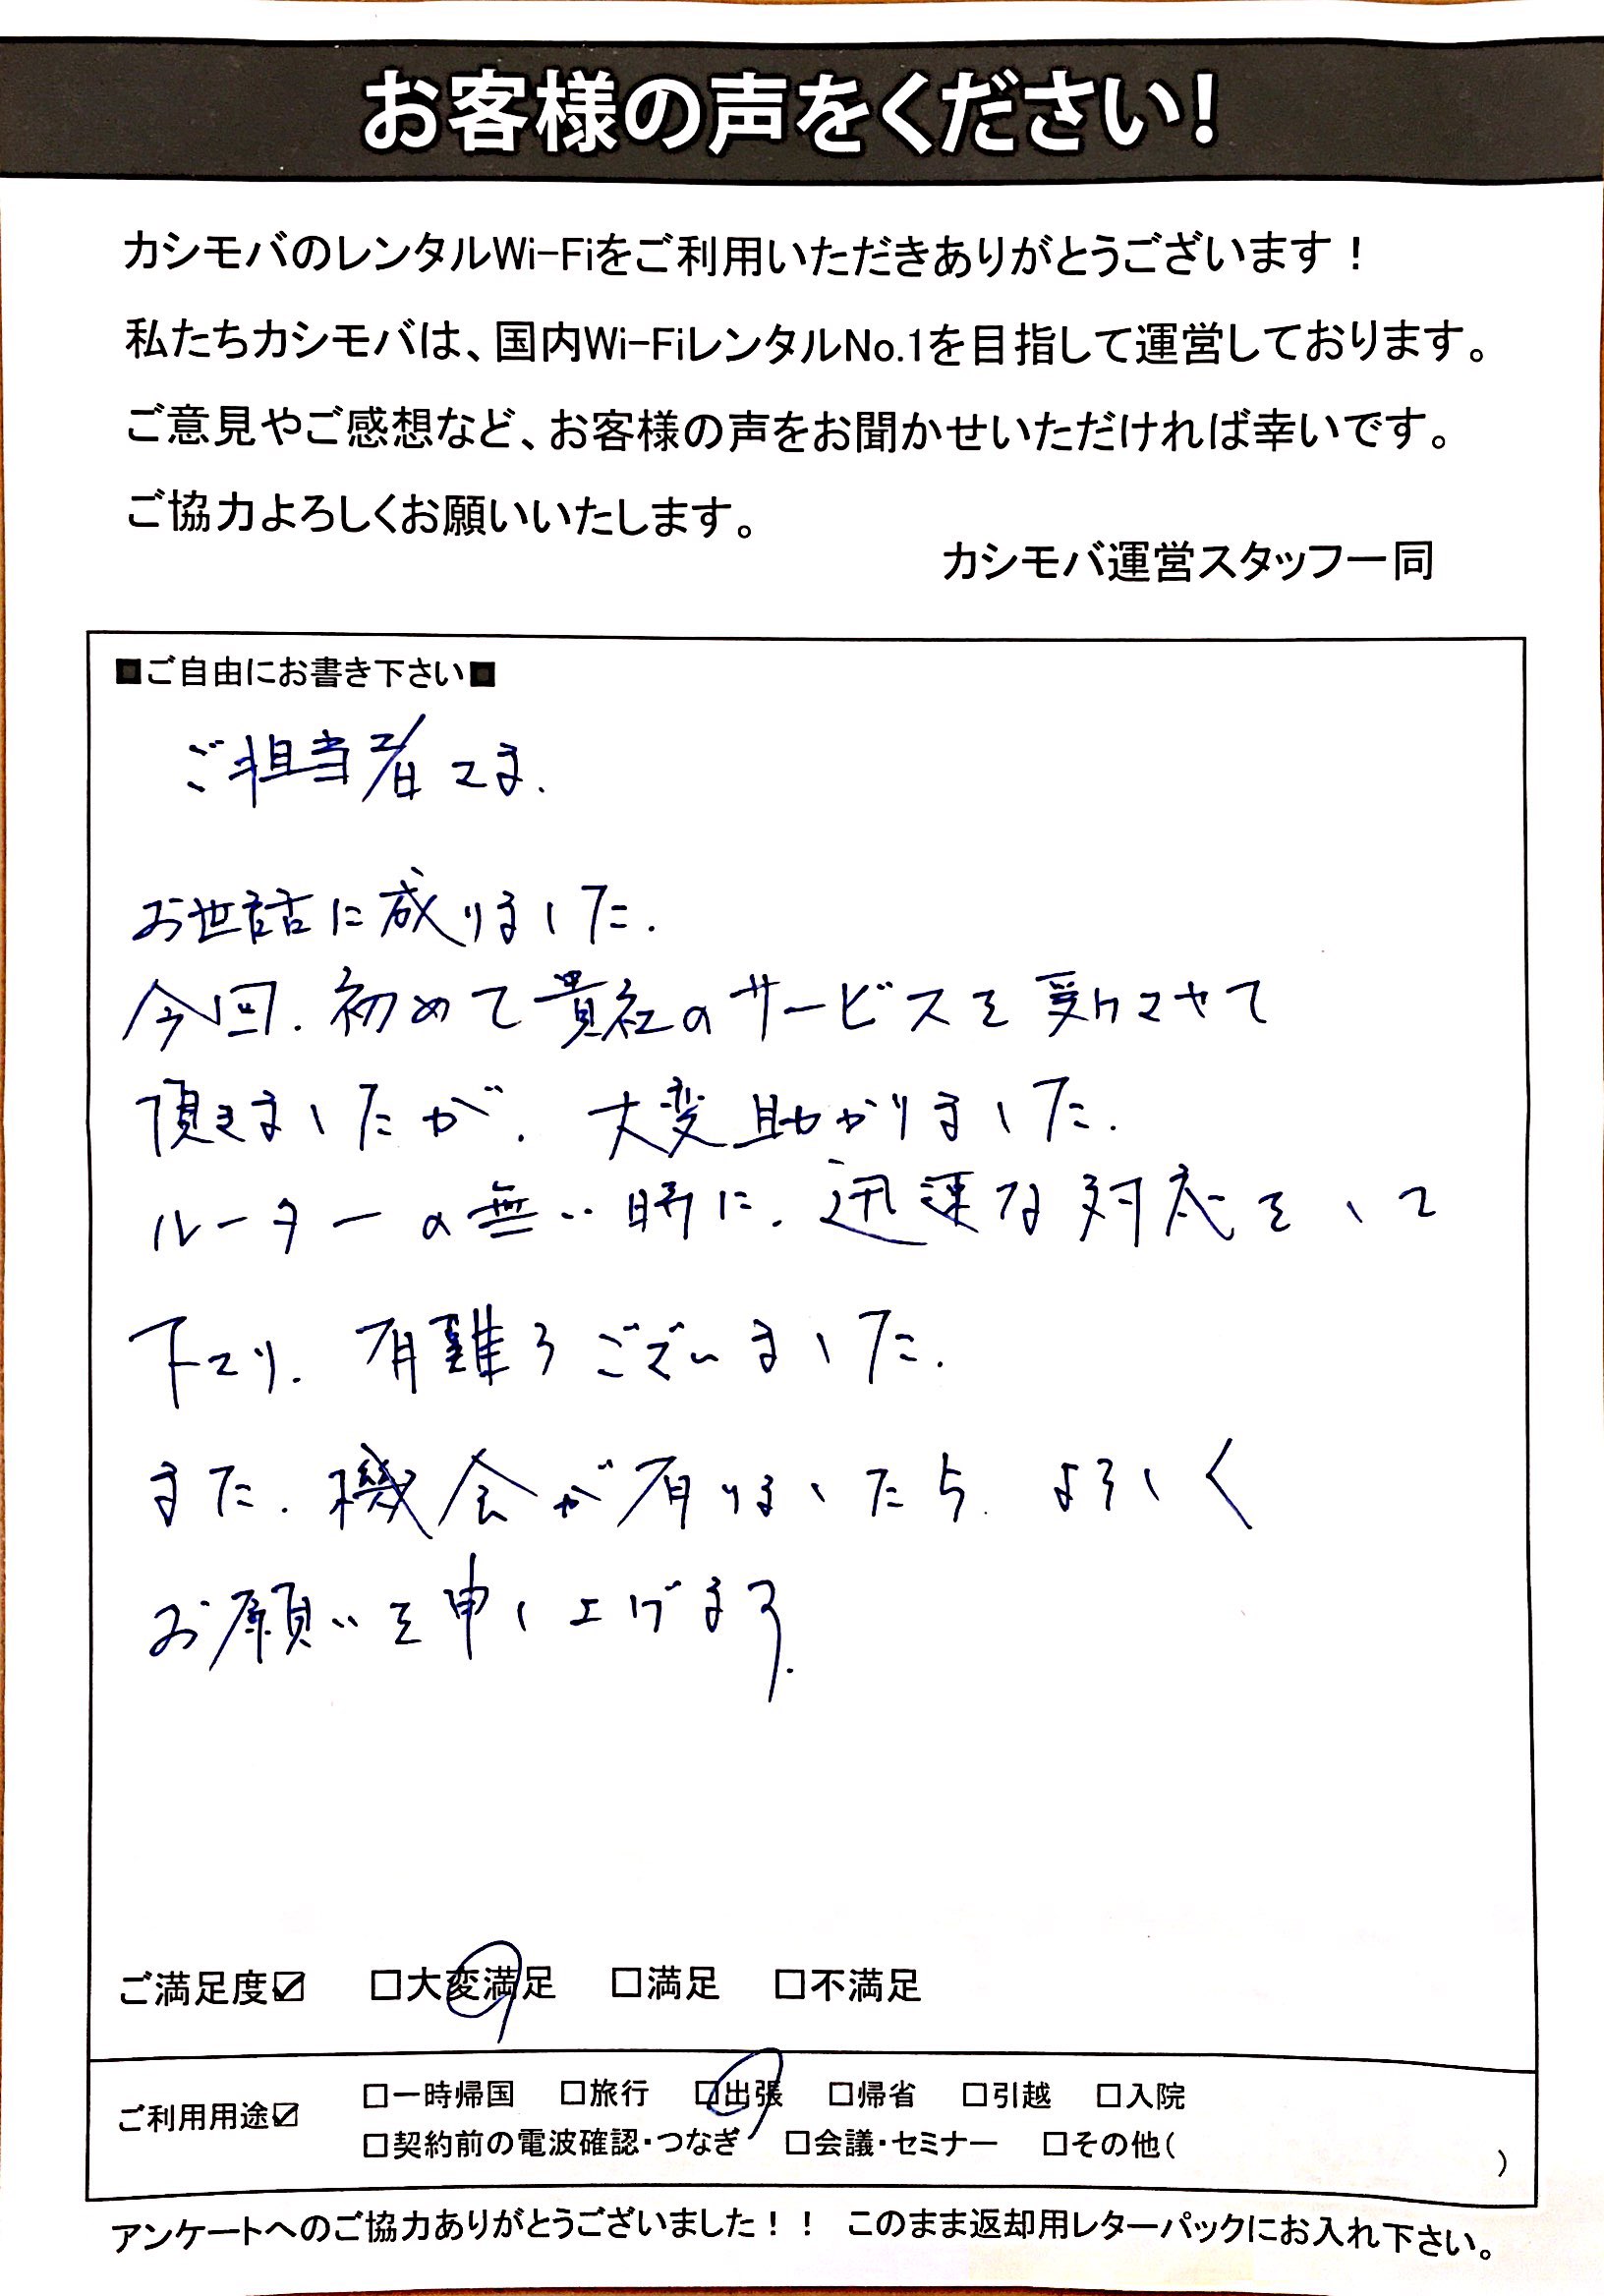 お客様の声をください!
カシモバのレンタルWi-Fiをご利用いただきありがとうございます！
私たちカシモバは、国内Wi-FiレンタルNo.1を目指して運営しております。
ご意見やご感想など、お客様の声をお聞かせいただければ幸いです。
ご協力よろしくお願いいたします。
カシモバ運営スタッフ一同
■ご自由にお書き下さい■
ご担当者さま.
お世話に成りました.
今回.初めて貴社のサービスを受けさせて
頂きましたが.大変助かりました.
ルーターの無い時に.迅速な対応をして
下さり.有難うございました.
また.機会が有りましたら.よろしく
お願いを申し上げます.
ご満足度☑ □大変満足 □満足 □不満足
ご利用用途☑ □一時帰国 □旅行 □出張 □帰省 □引越 □入院
□契約前の電波確認・つなぎ □会議・セミナー □その他( )
アンケートへのご協力ありがとうございました！！ このまま返却用レターパックにお入れ下さい。